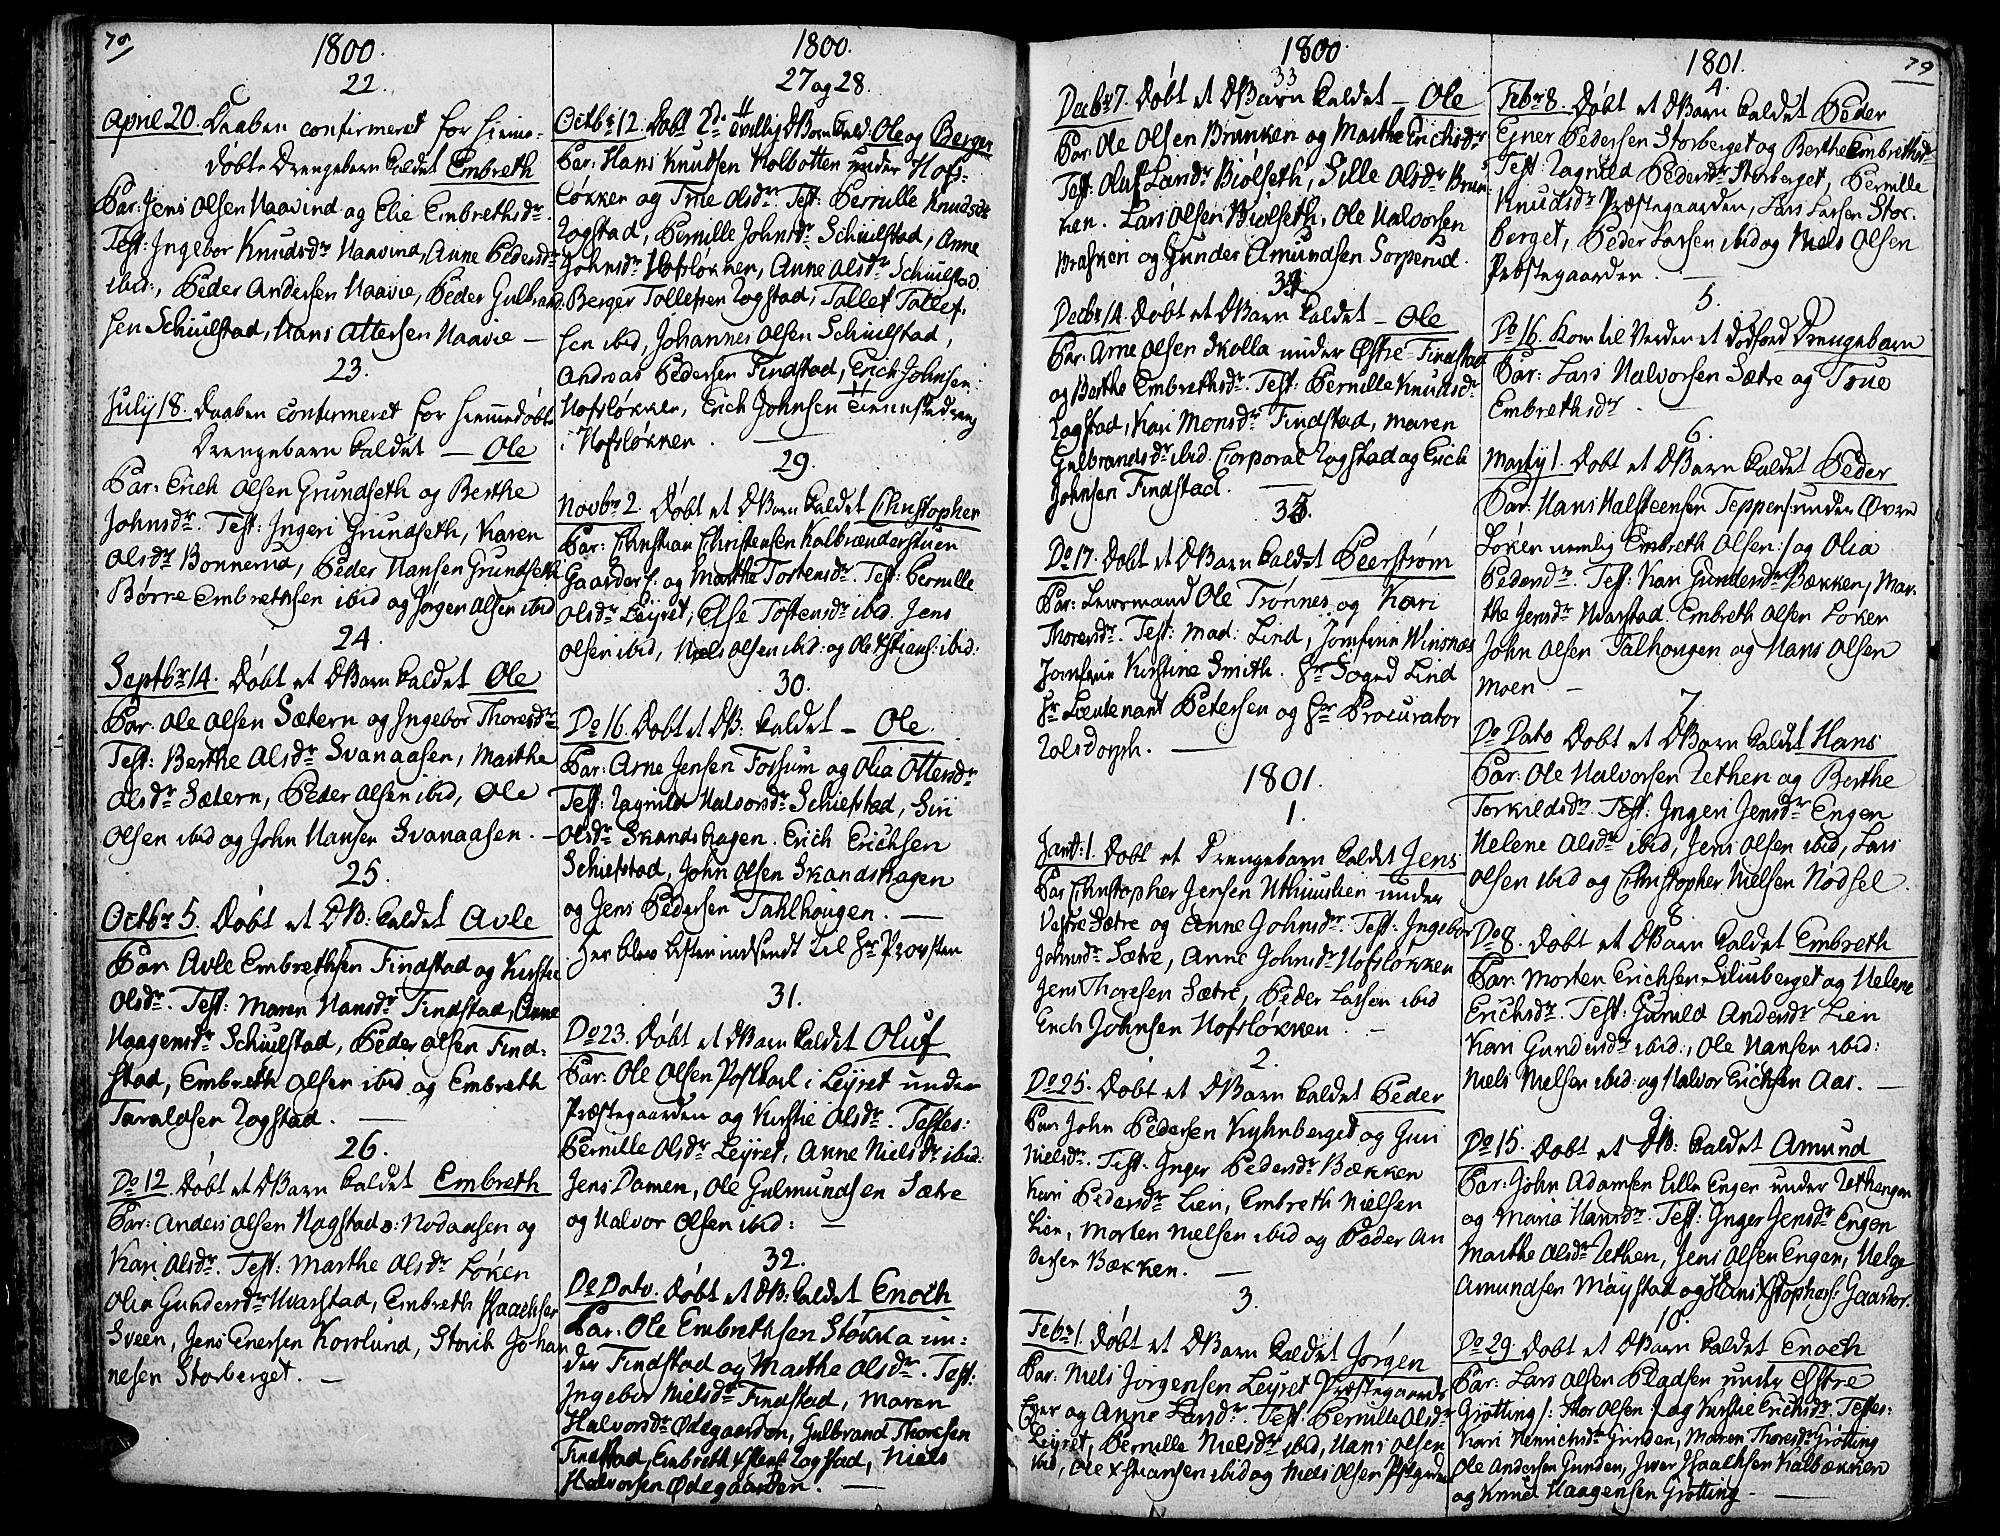 78
1800.
22.
April 20. Daaben confirmeret for hieme-
døbte Drengebarn kaldet Embreth
Par: Jens Olsen Haavind og Elie Embrethsdr.
Test: Ingebor Knudsdr Haavind, Anne Pedersdr
ibid:, Peder Andersen Haavie, Peder Gulbrand
sen Schiulstad, Hans Ottersen Haavie —
23.
July 18. Daaben confirmeret for hiemedøbte
Drengebarn kaldet — Ole
Par: Erich Olsen Grundseth og Berthe
Johnsdr. Test: Ingeri Grundseth, Karen
Olsdr Bonnerud, Peder Hansen Grundseth
Børre Embrethsen ibid og Jørgen Olsen ibid
24.
Septbr 14. Døbt et DBarn kaldet Ole
Par: Ole Olsen Sætern og Ingebor Thoresdr
Test: Berthe Olsdr Svanaasen, Marthe
Olsdr Sætern, Peder Olsen ibid, Ole
Olsen ibid og John Hansen Svanaasen. —
25.
Octbr 5. Døbt et DB: kaldet Avle
Par: Avle Embrethsen Findstad og Kirstie
Olsdr. Test: Maren Hansdr Findstad, Anne
Haagensdr Schiulstad, Peder Olsen Find-
stad, Embreth Olsen ibid og Embreth
Taraldsen Rogstad. —
26.
Do 12. Døbt et DBarn kaldet Embreth
Par: Anders Olsen Hagstad o: Nodaasen og
Kari Olsdr. Test: Marthe Olsdr Løken
Olia Gundersdr Hvarstad, Embreth Haachsen
Sveen, Jens Enersen Korslund, Storik Johan
nesen Storberget. —
1800.
27 og 28.
Octbr 12. Døbt 2de tvillig DBørn kald. Ole og Berger
Par: Hans Knudsen Kolbotten under Hofs-
løkken og True Olsdr. Test: Pernille Knudsdr
Rogstad, Pernille Johnsdr Schiulstad, Anne
Johnsdr Hofsløkken, Anne Olsdr Schiulstad
Berger Tollefsen Rogstad, Tollef Tollef-
sen ibid, Johannes Olsen Schiulstad,
Andreas Pedersen Findstad, Erich Johnsen
Hofsløkken, Erich Johnsen Tienistedreng
i Hofsløkken. —
29.
Novbr 2. Døbt et DBarn kaldet Christopher
Par: Christian Christensen Kalbrænderstuen
Gaarder s. og Marthe Tostensdr. Test: Pernille
Olsdr Leyret, Else Tostensdr ibid. Jens
Olsen ibid, Niels Olsen ibid: og Ole Xstians: ibid:
30.
Do 16. Døbt et DB: kaldet — Ole
Par: Arne Jensen Fossum og Olia Ottersdr
Test: Ragnild Halvorsdr Schiefstad, Siri
Olsdr Skandshagen. Erich Erichsen
Schiefstad, John Olsen Skandshagen
og Jens Pedersen Tahlhougen. —
Her blev Listen indsendt til Hr Provsten
31.
Do 23. Døbt et DBarn kaldet Oluf
Par: Ole Olsen Postkarl i Leyret under
Præstegaarden og Kirstie Olsdr. Testes:
Pernille Olsdr Leyret, Anne Nielsdr ibid:
Jens Damen, Ole Gulmundsen Sætre
og Halvor Olsen ibid: —
32.
Do Dato. Døbt et DB: kaldet Enoch
Par: Ole Embrethsen Støkka un-
der Findstad og Marthe Olsdr. Test:
Ingebor Nielsdr Findstad, Maren
Halvorsdr Ødegaarden, Gulbrand Thoresen
Findstad, Embreth Rogstad, Niels
Halvorsen Ødegaarden. —
1800
33
Decbr 7. Døbt et DBarn kaldet — Ole
Par: Ole Olsen Brunken og Marthe Erichsdr
Test: Oluf Larsdr Biølseth, Sille Olsdr Brun-
ken. Lars Olsen Biølseth, Ole Halvorsen
Brasken og Gunder Amundsen Sorperud.
34
Decbr 14. Døbt et DBarn kaldet — Ole
Par: Arne Olsen Skolla under Østre Findstad
og Berthe Embrethsdr. Test: Pernille Knudsdr
Rogstad, Kari Monsdr Findstad, Maren
Gulbrandsdr ibid. Corporal Rogstad og Erich
Johnsen Findstad. —
35.
Do 17. Døbt et DBarn kaldet Peerstrøm
Par: Lensmand Ole Trønnes og Kari
Thoresdr. Test: Mad: Lind, Jomfrue Winsnæs
Jomfrue Kirstine Smith. Hr Foged Lind
Hr Lieutenant Petersen og Hr Procurator
Rolsdorph. —
1801.
1.
Janr: 1. Døbt et Drengebarn kaldet Jens
Par Christopher Jensen Uthiuulien under
Vestre Sætre og Anne Johnsdr. Test: Ingebor
Johnsdr Sætre, Anne Johnsdr Hofsløkken
Jens Thoresen Sætre, Peder Larsen ibid
Erich Johnsen Hofsløkken. —
2.
Do 25. Døbt et DBarn kaldet Peder
Par: John Pedersen Kyhnberget og Guri
Nielsdr. Test: Inger Pedersdr Bækken
Kari Pedersdr Lien, Embreth Nielsen
Lien, Morten Nielsen ibid og Peder An
dersen Bækken. —
3.
Febr 1. Døbt et DBarn kaldet Jørgen
Par: Niels Jørgensen Leyret Præstegaards
Eyer og Anne Larsdr. Test: Pernille Olsdr
Leyret, Pernille Nielsdr ibid, Hans Olsen
ibid, Ole Xstiansen ibid og Niels Olsen
1801.
79
4.
Febr 8. Døbt et DBarn kaldet Peder
Egner Pedersen Storberget og Berthe Embrethsdr
Test: Ragnild Pedersdr Storberget, Pernille
Knudsdr Præstegaarden, Lars Larsen Stor-
berget, Peder Larsen ibid og Niels Olsen
Præstegaarden. —
5.
Do 16. Kom til Verden et dødfød Drengebarn
Par: Lars Halvorsen Sætre og True
Embrethsdr. —
6.
Martij 1. Døbt et DBarn kaldet Peder
Par: Hans Halsteensen Teppen /: under Øvre
Løken nemlig Embreth Olsen :/ og Olia
Pedersdr. Test: Kari Gundersdr Bækken, Mar-
the Jensdr Hvarstad. Embreth Olsen Løken
John Olsen Talhougen og Hans Olsen
Moen —
7.
Do Dato Døbt et DBarn kaldet Hans
Par: Ole Halvorsen Rethen og Berthe
Torkildsdr. Test: Ingeri Jensdr Engen
Helene Olsdr ibid, Jens Olsen ibid, Lars
Olsen ibid og Christopher Nielsen Nodsel.
8.
Do 8. Døbt et DBarn kaldet Embreth
Par: Morten Erichsen Skiuberget og Helene
Erichsdr. Test: Gunild Andersdr Lien
Kari Gundersdr ibid:, Ole Hansen ibid:
Niels Nielsen ibid: og Halvor Erichsen Aas. —
9.
Do 15. Døbt et DB: kaldet Amund
Par: John Adamsen Lille Enger under Rethengen
og Maria Hansdr. Test: Inger Jensdr Engen
Marthe Olsdr Rethen, Jens Olsen Engen, Helge
Amundsen Møystad og Hans Xstophers: Gaarder.
10.
Do 29. Døbt et DBarn kaldet Enoch
Par: Lars Olsen Pladsen under Østre
Grøtting /: Thor Olsen :/ og Kirstie Erichsdr. Testes:
Kari Henrichsdr Gunden, Maren Thoresdr Grøtting
Ole Andersen Gunden, Iver Haachsen Kalbækken
og Knud Haagensen Grøtting —